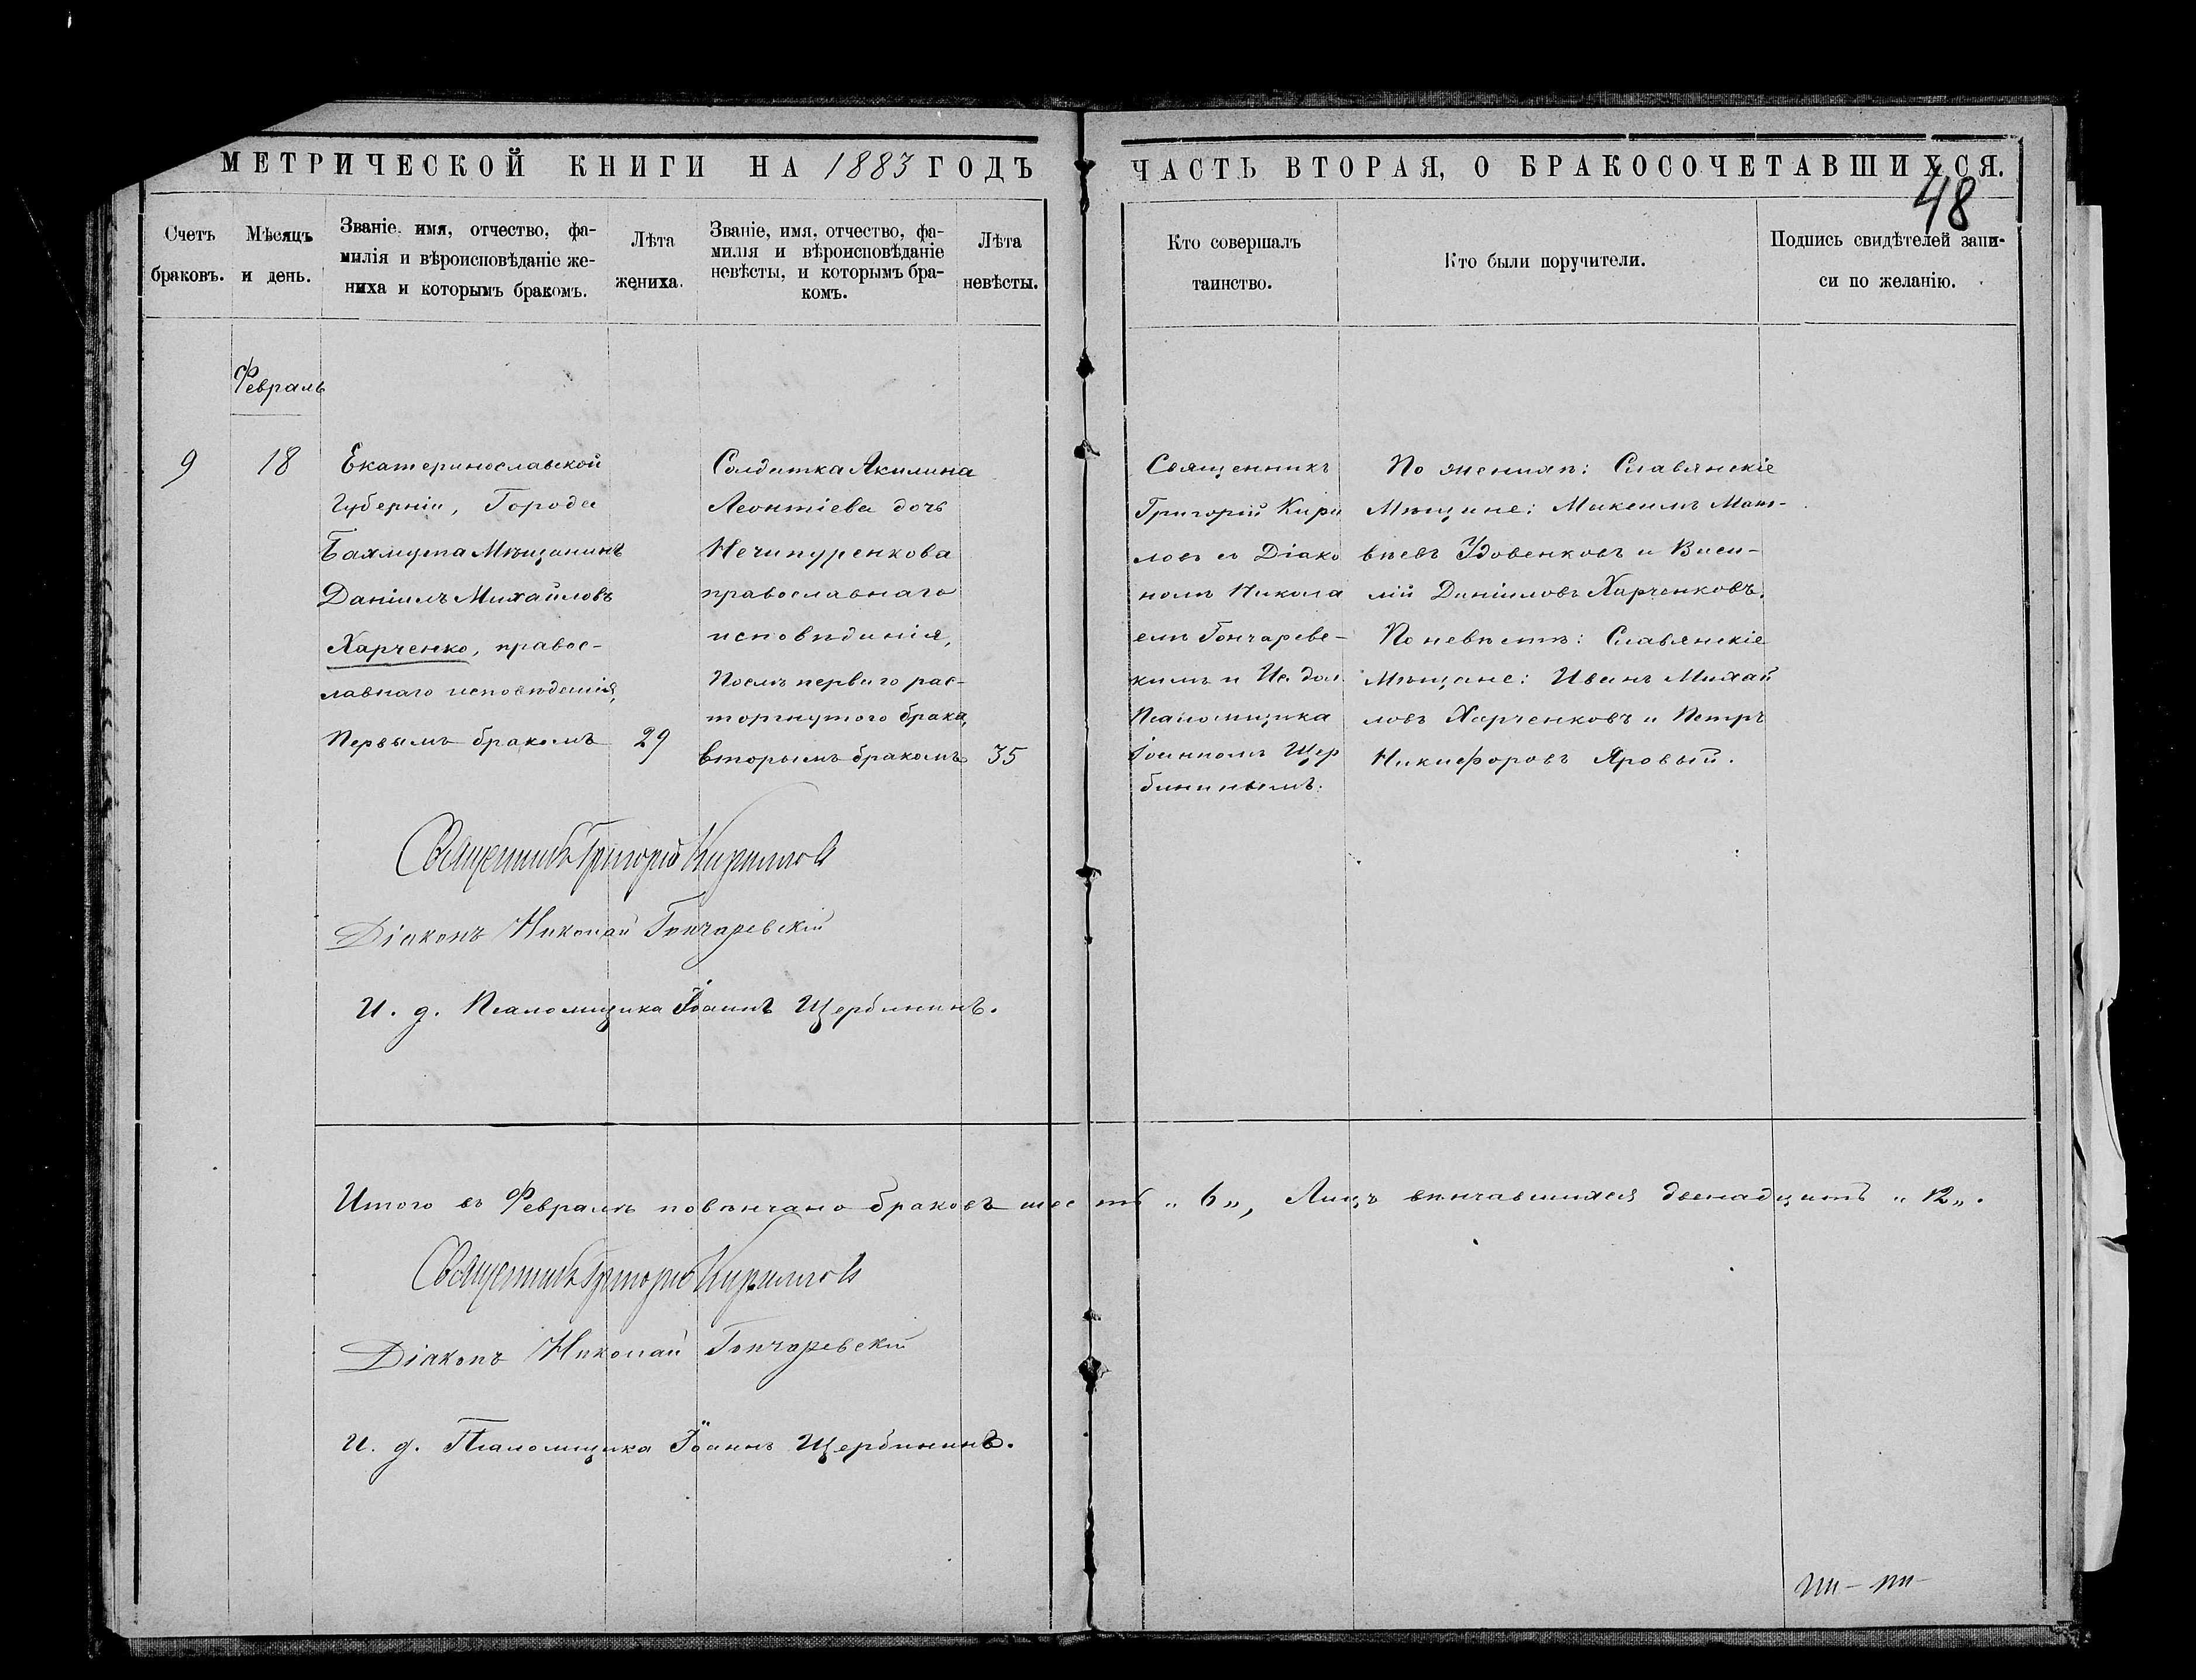 МЕТРИЧЕСКОЙ КНИГИ НА 1883 ГОДЪ
ЧАСТЬ ВТОРАЯ, О БРАКОСОЧЕТАВШИХСЯ.
48
Счетъ
браковъ.
Мѣсяцъ
и день.
Званіе, имя, отчество, фа-
милія и вѣроисповѣданіе же-
ниха и которымъ бракомъ.
Лѣта
жениха.
Званіе, имя, отчество, фа-
милія и вѣроисповѣданіе
невѣсты, и которымъ бра-
комъ.
Лѣта
невѣсты.
Кто совершалъ
таинство.
Кто были поручители.
Подпись свидѣтелей запи-
си по желанію.
Февраль
9
18
Екатеринославской
Губерніи, Города
Бахмута Мѣщанинъ
Даніилъ Михайловъ
Харченко, правос-
лавнаго исповѣданія,
Первымъ бракомъ
29
Солдатка Акилина
Леонтіева дочь
Нечипуренкова
православнаго
исповѣданія,
Послѣ перваго рас-
торгнутого брака,
вторымъ бракомъ
35
Священникъ
Григорій Кири
ловъ съ Діако
номъ Никола
емъ Гончаревс-
кимъ и Ис. дол.
Псаломщика
Іоанномъ Щер
бининымъ.
По женихѣ: Славянскіе
Мѣщане: Максимъ Мат-
вѣевъ Удовенковъ и Васи-
лій Даниіловъ Харченковъ.
По невѣстѣ: Славянскіе
Мѣщане: Иванъ Михай
ловъ Харченковъ и Петръ
Никифоровъ Яровый.
Священникъ Григорій Кириловъ
Діаконъ Николай Гончаревскій
И. д. Псаломщика Іоаннъ Щербининъ.
Итого въ Февралѣ повѣнчано браковъ шесть „6„, Лицъ вѣнчавшихся двенадцать „12„.
Священникъ Григорій Кириловъ
Діаконъ Николай Гончаревскій
И. д. Псаломщика Іоаннъ Щербининъ.